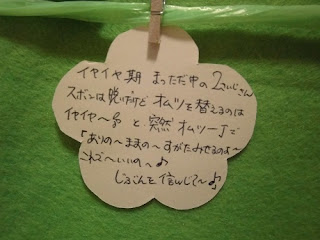 イヤイヤ期 まっただ中の 2さいじさん
ズボンは脱いだけど オムツを替えるのは
イヤイヤ〜 と 突然 オムツ一丁で
「ありの〜ままの〜すがたみせるのよ〜
これで〜いいの〜♪
じぶんを信んじて〜♪」